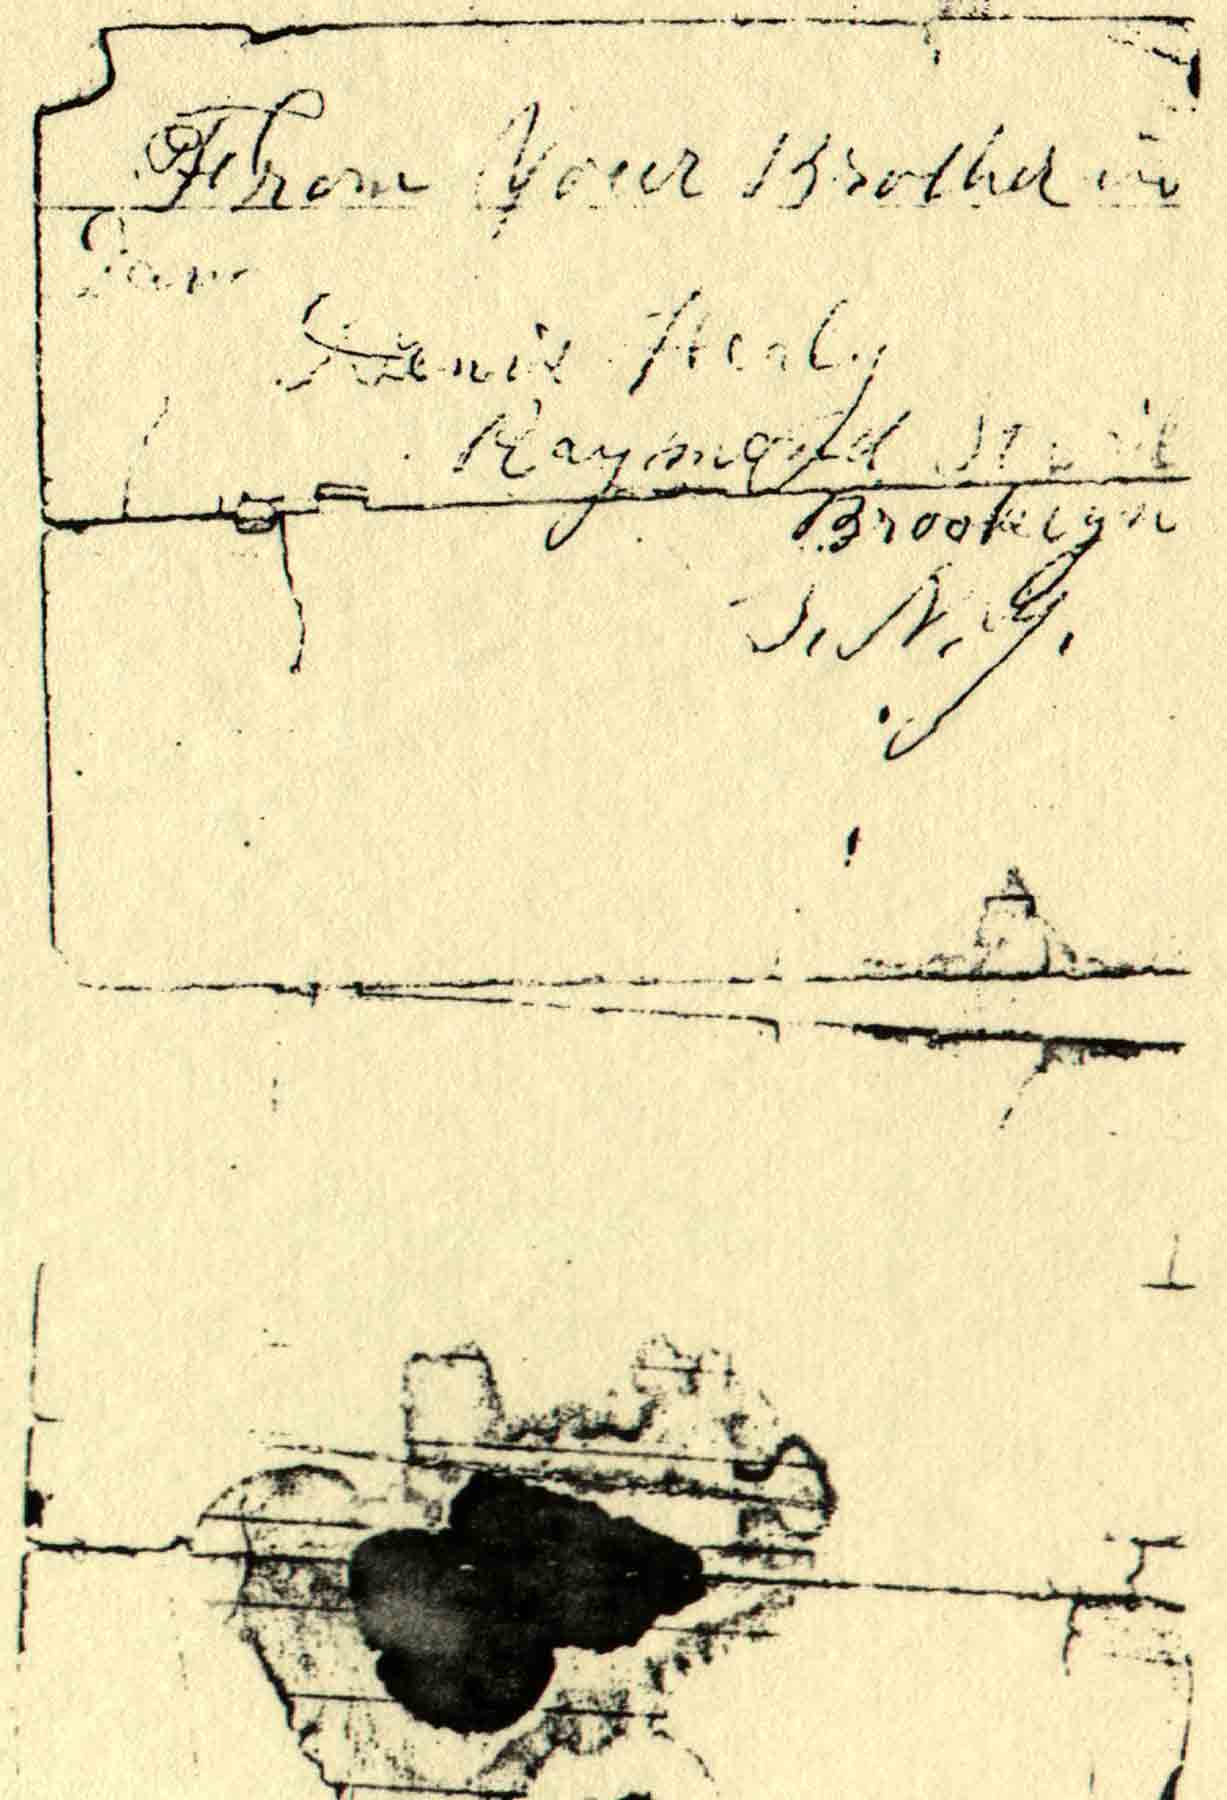 From Your Brother in
Law
Denis Healy
Raymond St
Brooklyn
N.Y.